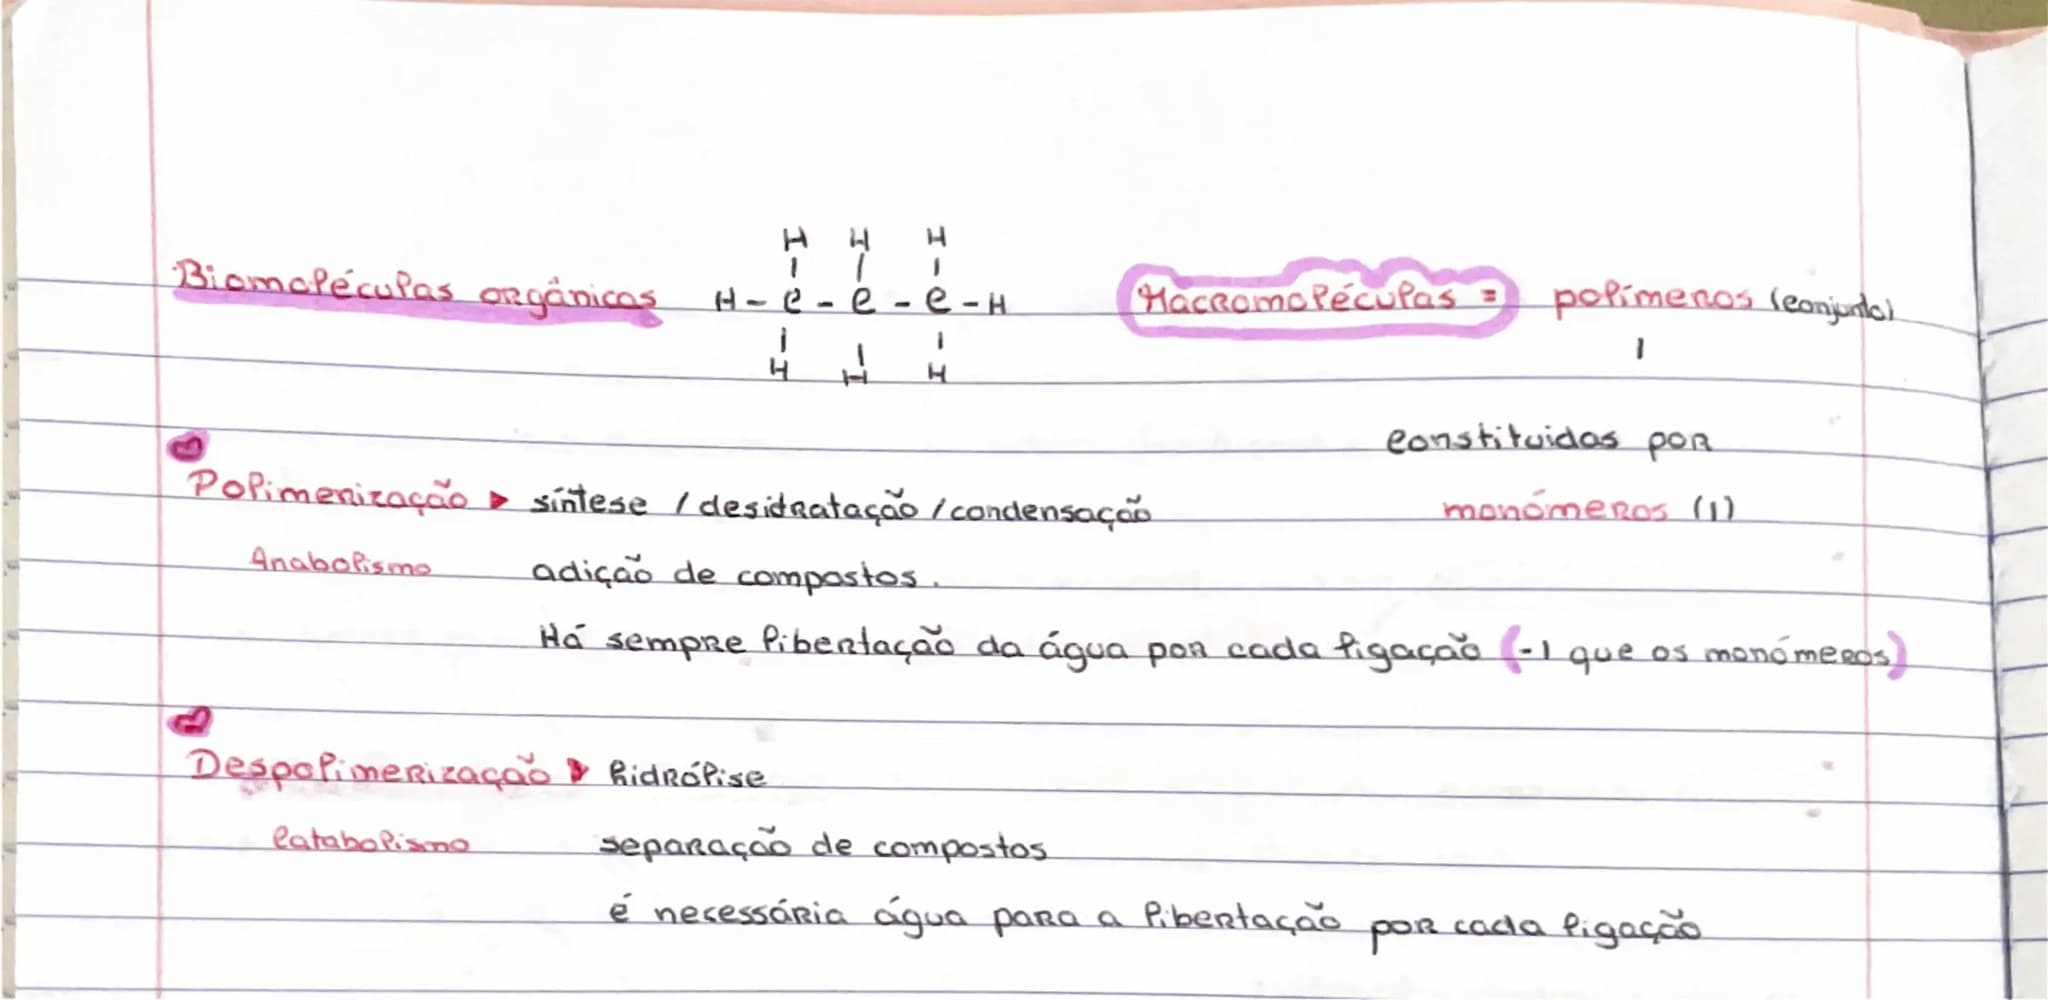 H H H
| | |
Biomoléculas orgânicas H-C-C-C-H Macromoléculas = polímeros (conjunto)
| | | |
H H H
constituidas por
Polimerização ▶ síntese / desidratação / condensação monómeros (1)
Anabolismo adição de compostos.
Há sempre libertação da água por cada ligação (-1 que os monómeros)
Despolimerização ▶ hidrólise
Catabolismo separação de compostos
é necessária água para a libertação por cada ligação